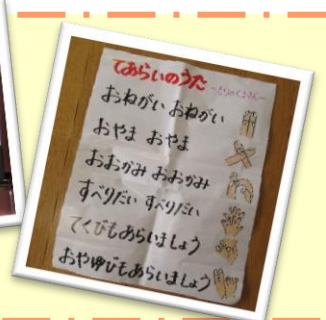 てあらいのうた
おねがい おねがい
おやま おやま
おおかみ おおかみ
すべりだい すべりだい
てくびもあらいましょう
おやゆびもあらいましょう